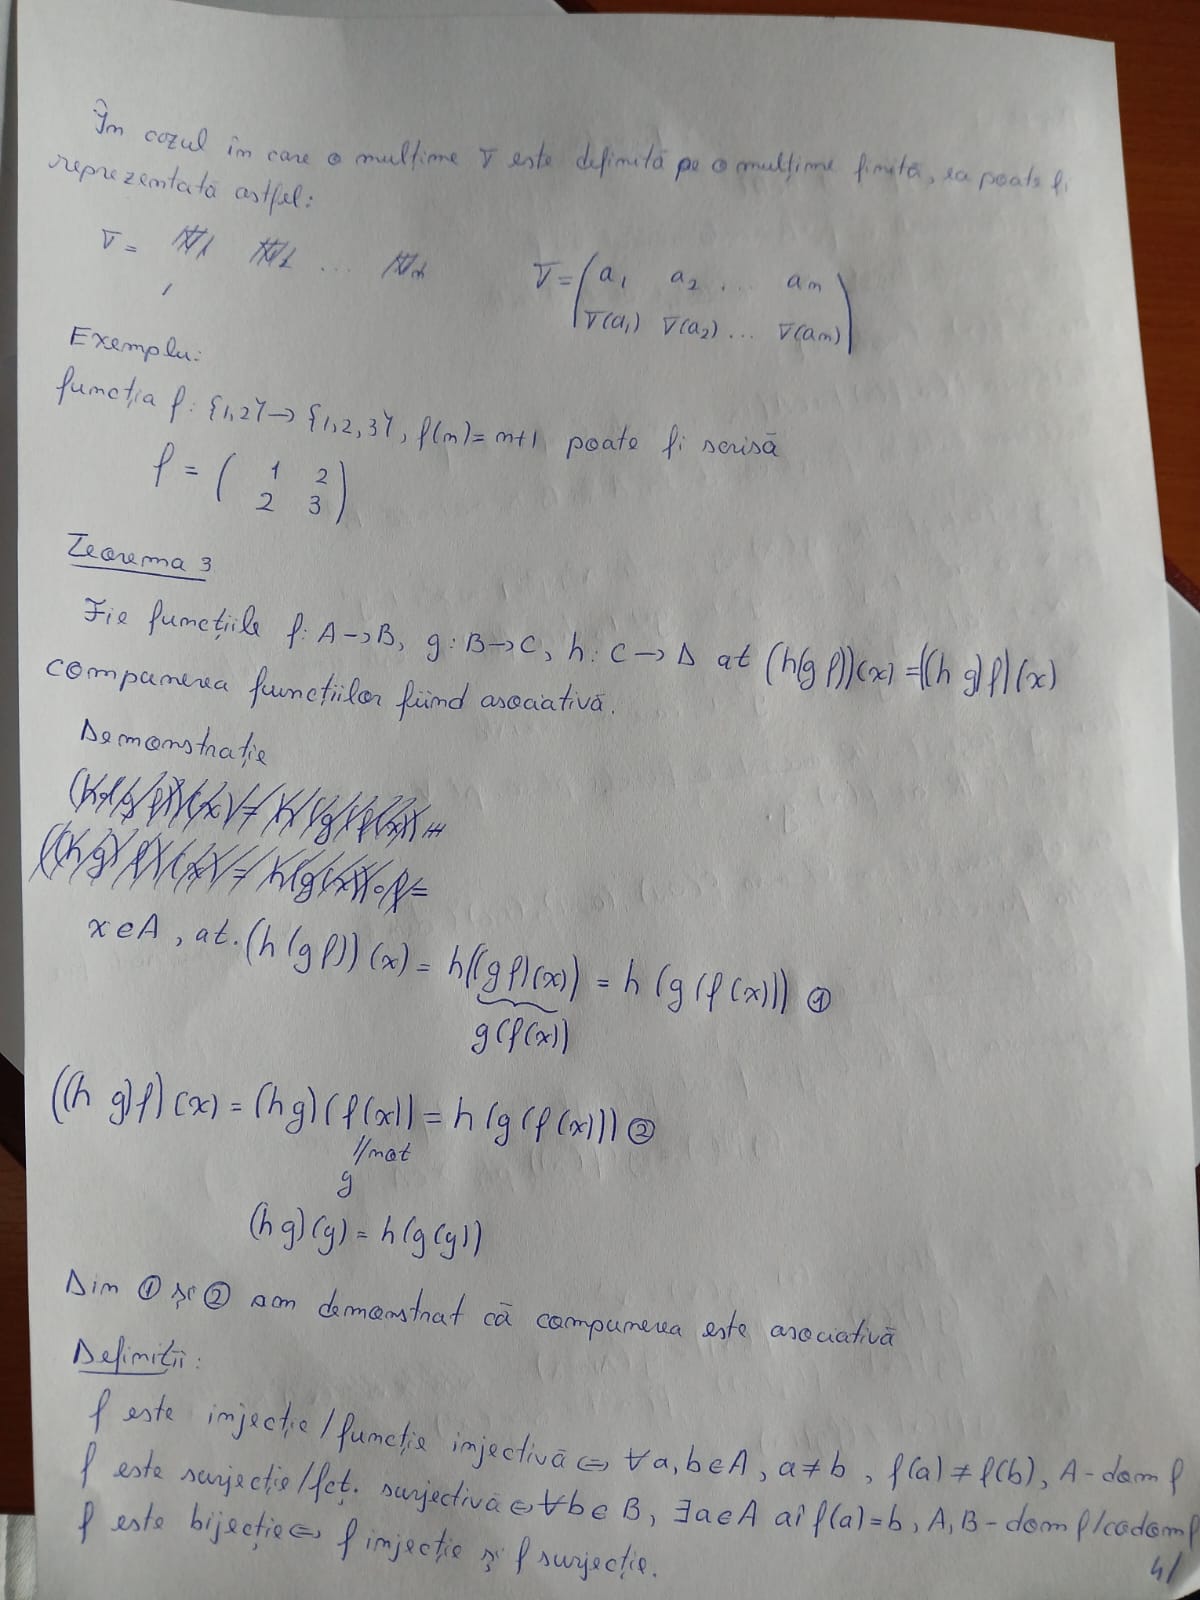 În cazul în care o mulțime σ este definită pe o mulțime finită, ea poate fi
reprezentată astfel:
σ = ...
σ = ( a1 a2 ... an )
( σ(a1) σ(a2) ... σ(an) )
Exemplu:
funcția f: {1,2} → {1,2,3}, f(n)= n+1 poate fi scrisă
f = ( 1 2 )
( 2 3 )
Teorema 3
Fie funcțiile f: A→B, g: B→C, h: C→D at (h(g f))(x) = ((h g) f)(x)
compunerea funcțiilor fiind asociativă.
Demonstrație
x∈A, at. (h (g f)) (x) = h((g f)(x)) = h (g (f (x))) ①
g(f(x))
((h g) f) (x) = (h g) (f(x)) = h (g (f (x))) ②
// not
y
(h g)(y) = h(g(y))
Din ① și ② am demonstrat că compunerea este asociativă
Definiții:
f este injecție/funcție injectivă ⇔ ∀a, b∈A, a≠b, f(a)≠f(b), A-dom f
f este surjecție/fcț. surjectivă ⇔ ∀b∈B, ∃a∈A aî f(a)=b, A, B-dom f/codom f
f este bijecție ⇔ f injecție și f surjecție.
4/